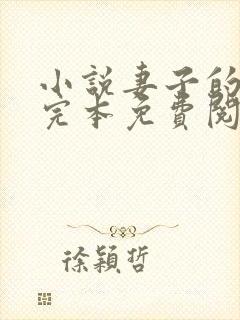 小說妻子的
完本免費閱
徐穎哲